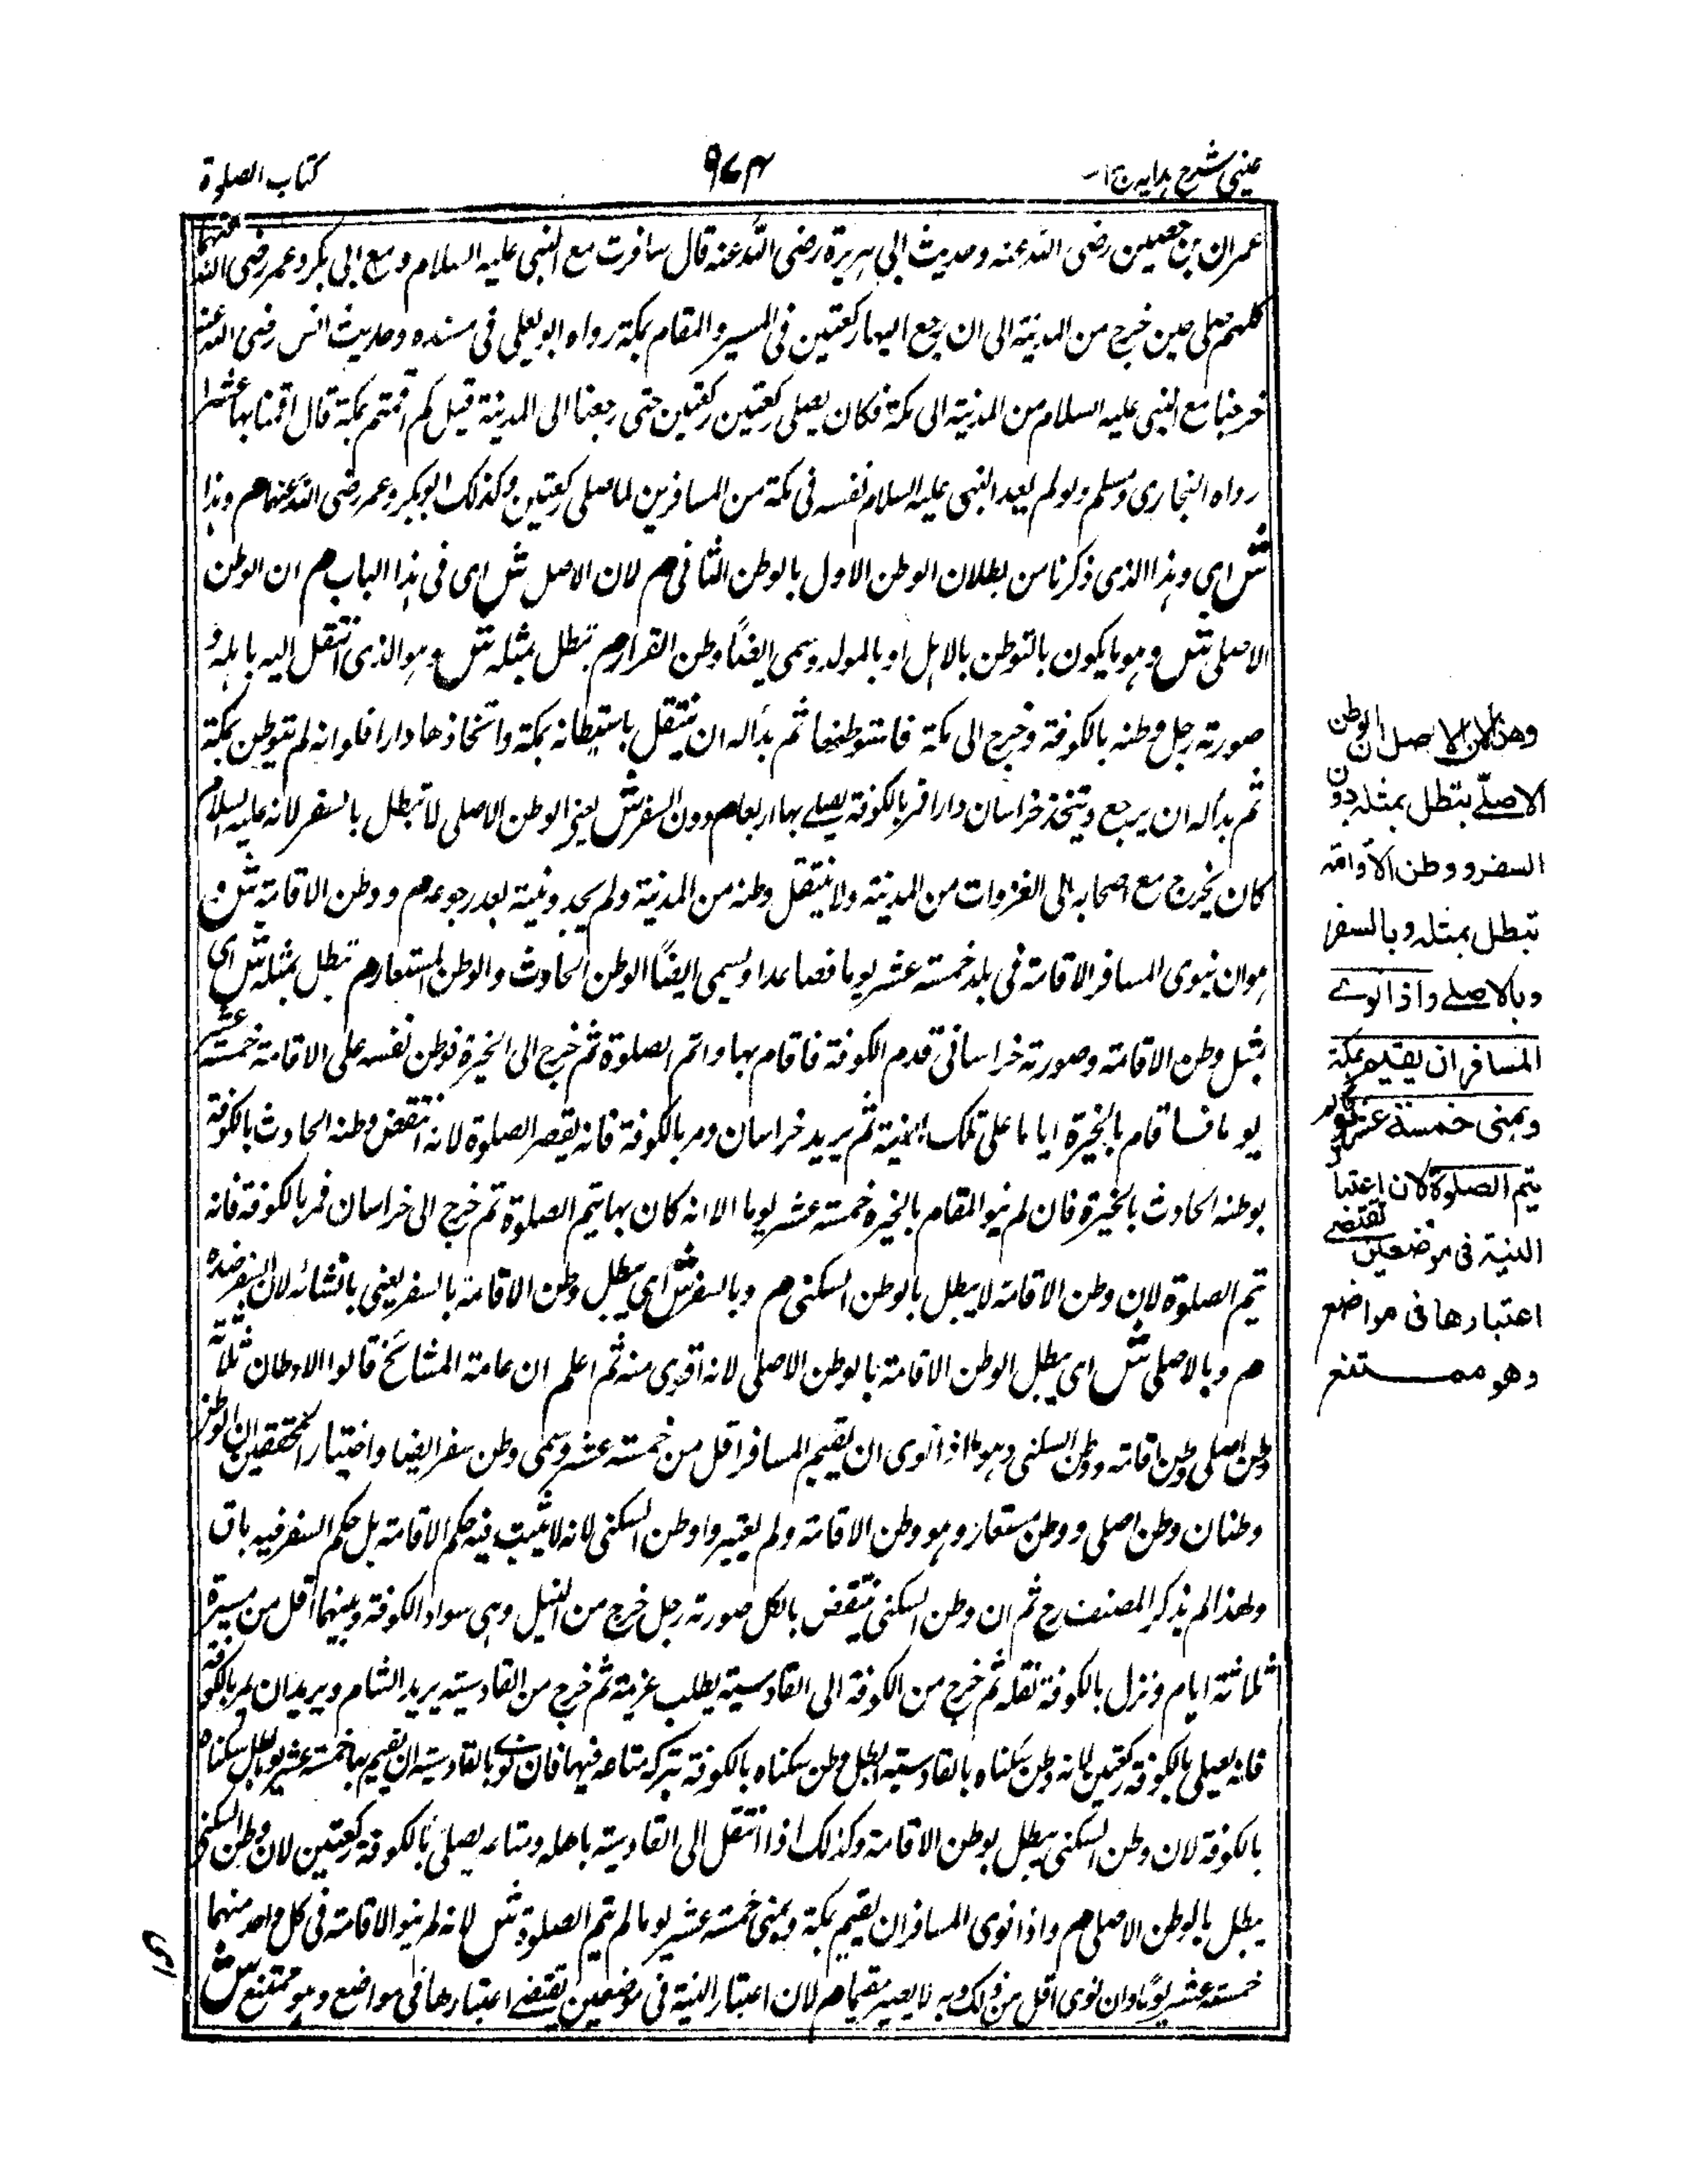 عینی شرح ہدایہ ج ا
۹۷۴
کتاب الصلوۃ
عمران بن حصین رضی اللہ عنہ وحدیث ابی ہریرۃ رضی اللہ عنہ قال سافرت مع النبی علیہ السلام ومع ابی بکر وعمر رضی اللہ عنہما
کلہم صلی حین خرج من المدینۃ الی ان رجع الیہا رکعتین فی المسیر والمقام بمکۃ رواہ ابو یعلی فی مسندہ وحدیث انس رضی اللہ عنہ
خرجنا مع النبی علیہ السلام من المدینۃ الی مکۃ فکان یصلی رکعتین رکعتین حتی رجعنا الی المدینۃ قیل کم اقمتم بمکۃ قال اقمنا بہا عشرا
رواہ البخاری ومسلم ولو لم یعد النبی علیہ السلام نفسہ فی مکۃ من المسافرین لما صلی رکعتین وکذلک ابوبکر وعمر رضی اللہ عنہما م وہذا
ش ای وہذا الذی ذکرنا من بطلان الوطن الاول بالوطن الثانی م لان الاصل ش ای فی ہذا الباب م ان الوطن
الاصلی ش وہو ما یکون بالتوطن بالاہل او بالمولد ویسمی ایضًا وطن القرار م تبطل بمثلہ ش وہو الذی انتقل الیہ باہلہ و
صورتہ رجل وطنہ بالکوفۃ وخرج الی مکۃ فاستوطنہا ثم بدألہ ان ینتقل باستیطانہ بمکۃ واتخاذھا دارا فلوانہ لم یتوطن بمکۃ
ثم بدألہ ان یرجع ویتخذ خراسان دارا فمر بالکوفۃ یصلے بہا اربعا م دون السفر ش یعنی الوطن الاصلی لا تبطل بالسفر لانہ علیہ السلام
کان یخرج مع اصحابہ الی الغزوات من المدینۃ ولا ینتقل وطنہ من المدینۃ ولم یجدد نیۃ بعد رجوعہ م ووطن الاقامۃ ش و
ہو ان ینوی المسافر الاقامۃ فی بلد خمسۃ عشر یوما فصاعدا ویسمی ایضًا الوطن الحادث والوطن المستعار م تبطل بمثلہ ش ای
بمثل وطن الاقامۃ وصورتہ خراسانی قدم الکوفۃ فاقام بہا واتم الصلوۃ ثم خرج الی الحیرۃ فوطن نفسہ علی الاقامۃ خمسۃ عشر
یوما فاقام بالحیرۃ ایاما علی تلک النیۃ ثم یرید خراسان ومر بالکوفۃ فانہ یقصر الصلوۃ لانہ انتقض وطنہ الحادث بالکوفۃ
بوطنہ الحادث بالحیرۃ فان لم ینو المقام بالحیرۃ خمسۃ عشر یوما الا انہ کان بہا یتم الصلوۃ ثم خرج الی خراسان فمر بالکوفۃ فانہ
یتم الصلوۃ لان وطن الاقامۃ لا یبطل بالوطن السکنی م وبالسفر ش ای یبطل وطن الاقامۃ بالسفر یعنی بانشائہ لان السفر ضدہ
م وبالاصلی ش ای یبطل الوطن الاقامۃ بالوطن الاصلی لانہ اقوی منہ ثم اعلم ان عامۃ المشائخ قالوا الاوطان ثلاثۃ
وطن اصلی ووطن اقامۃ ووطن السکنی وہو ما اذا نوی ان یقیم المسافر اقل من خمسۃ عشر ویسمی وطن سفر ایضا واختیار المحققین ان الوطن
وطنان وطن اصلی ووطن مستعار وہو وطن الاقامۃ ولم یعتبروا وطن السکنی لانہ لا یثبت فیہ حکم الاقامۃ بل حکم السفر فیہ باق
ولھذا لم یذکر المصنف رح ثم ان وطن السکنی ینتقض بالکل صورتہ رجل خرج من النیل وہی سواد الکوفۃ وبینہما اقل من مسیرۃ
ثلاثۃ ایام ونزل بالکوفۃ نقلہ ثم خرج من الکوفۃ الی القادسیۃ یطلب غریمۃ ثم خرج من القادسیۃ یرید الشام ویریدان یمر بالکوفۃ
فانہ یصلی بالکوفۃ رکعتین لانہ وطن سکناہ بالقادسیۃ ابطل وطن سکناہ بالکوفۃ بترکہ متاعہ فیہا فان نوی بالقادسیۃ ان یقیم بہا خمسۃ عشر یوما بطل سکناہ
بالکوفۃ لان وطن السکنی یبطل بوطن الاقامۃ وکذلک اذا انتقل الی القادسیۃ باھلہ ومتاعہ یصلی بالکوفۃ رکعتین لان وطن السکنی
یبطل بالوطن الاصلی م واذا نوی المسافر ان یقیم بمکۃ وبمنی خمسۃ عشر یوما لم یتم الصلوۃ ش لانہ لم ینو الاقامۃ فی کل واحد منہما
خمسۃ عشر یومًا وان نوی اقل من ذلک وبہ لا یصیر مقیما م لان اعتبار النیۃ فی موضعین یقتضے اعتبارھا فی مواضع وہو ممتنع ش
وھذا لان الاصل ان الوطن
الاصلے یبتطل بمثلہ دون
السفر ووطن الاقامۃ
تبطل بمثلہ وبالسفر
وبالاصلے واذا نوے
المسافر ان یقیم بمکۃ
وبمنی خمسۃ عشر یوما لم
یتم الصلوۃ لان اعتبار
النیۃ فی موضعین یقتضے
اعتبارھا فی مواضع
وھو ممتنع